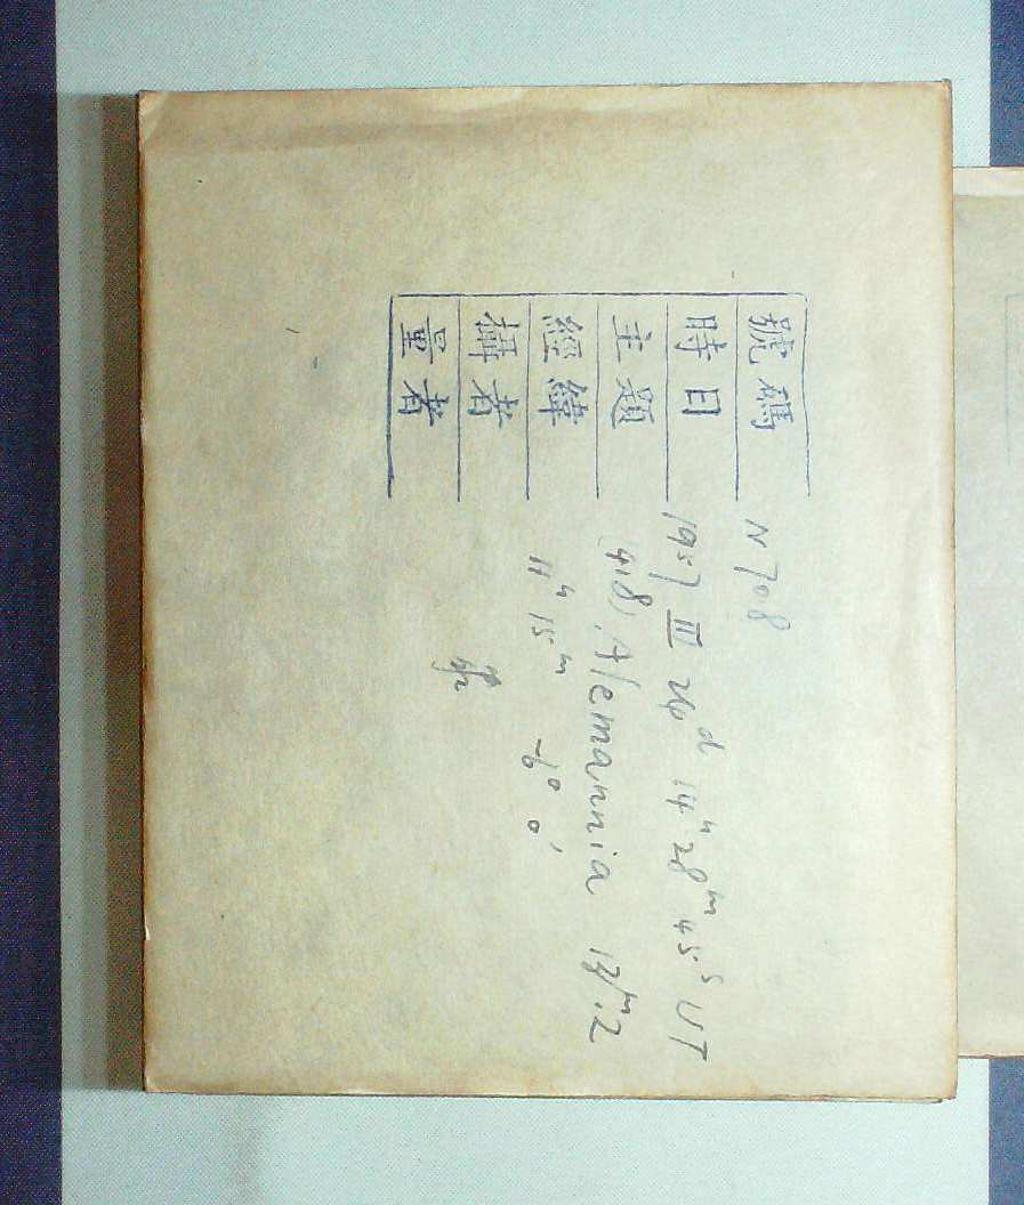 號碼 N 708
時日 1957 III 24ᵈ 14ʰ 28ᵐ 45ˢ UT
主題 (418) Alemannia 13ᵐ.2
經緯 11ʰ 15ᵐ -6° 0′
攝者
量者